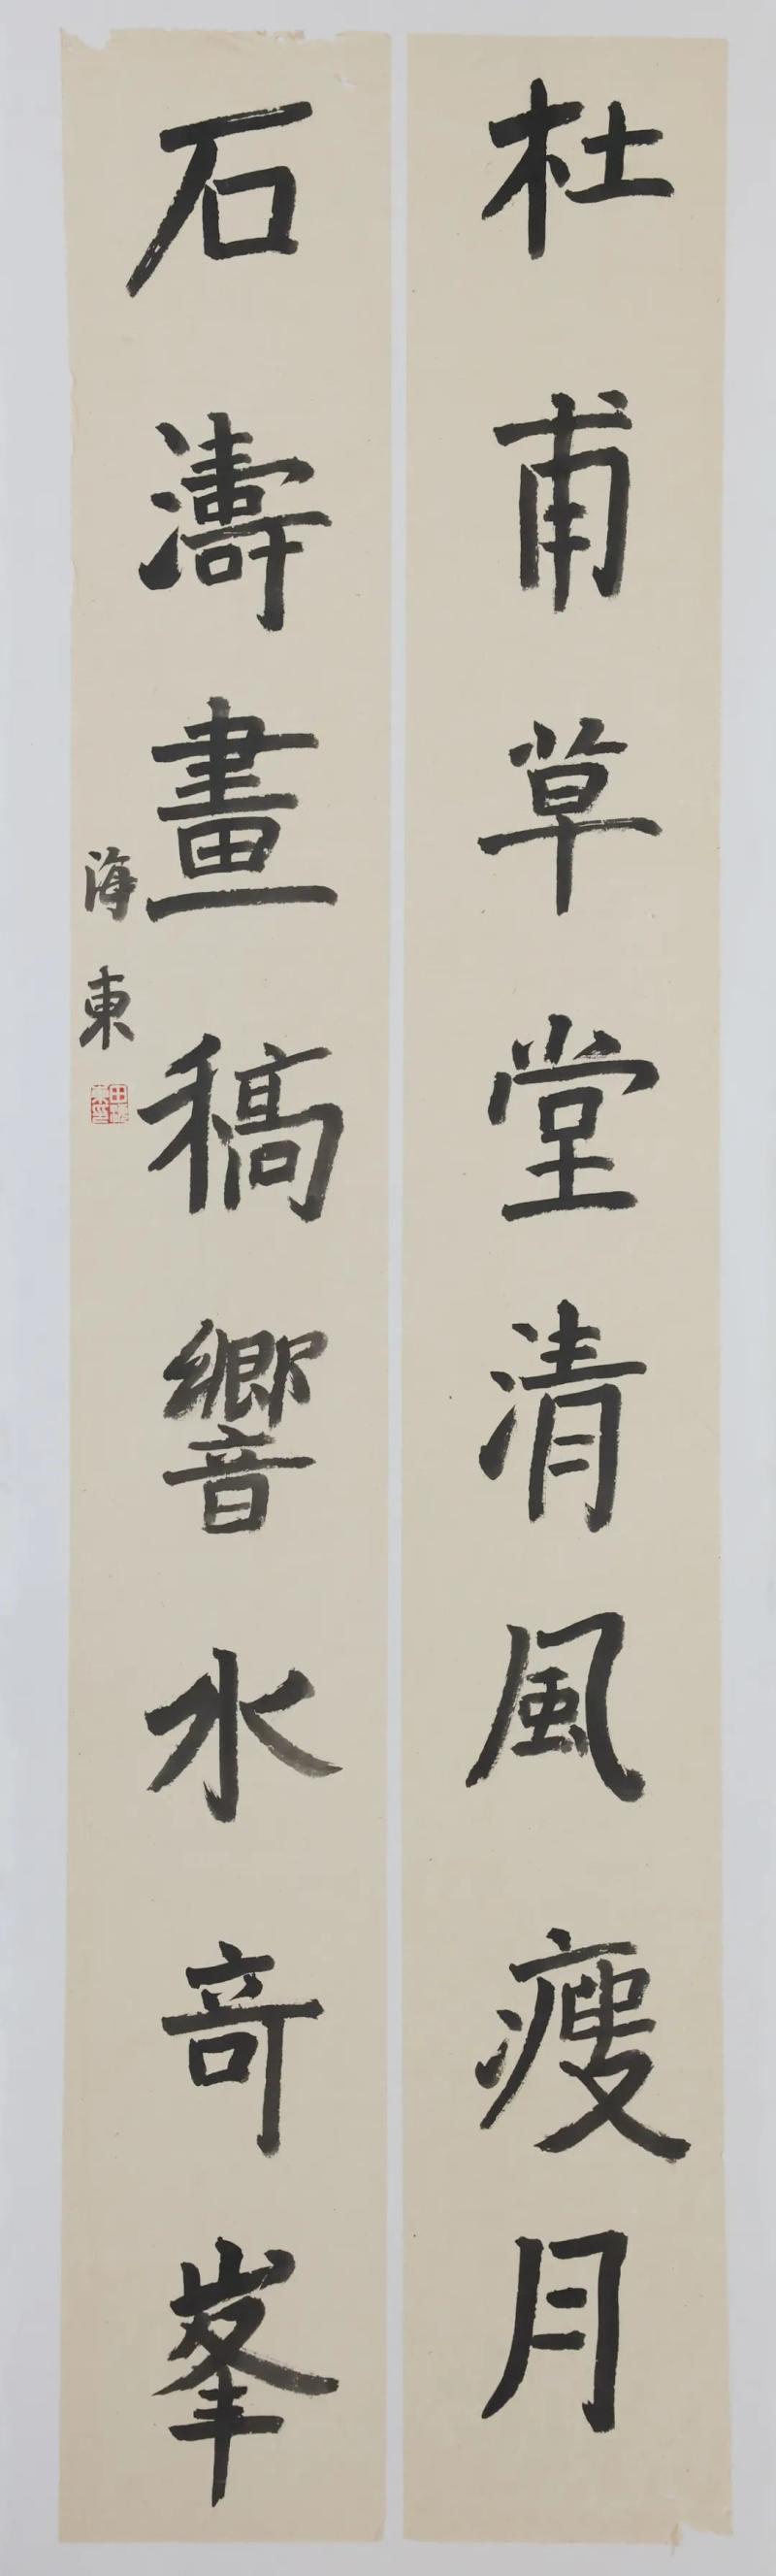 杜甫草堂清風瘦月
石濤畫稿響水竒峯
海東